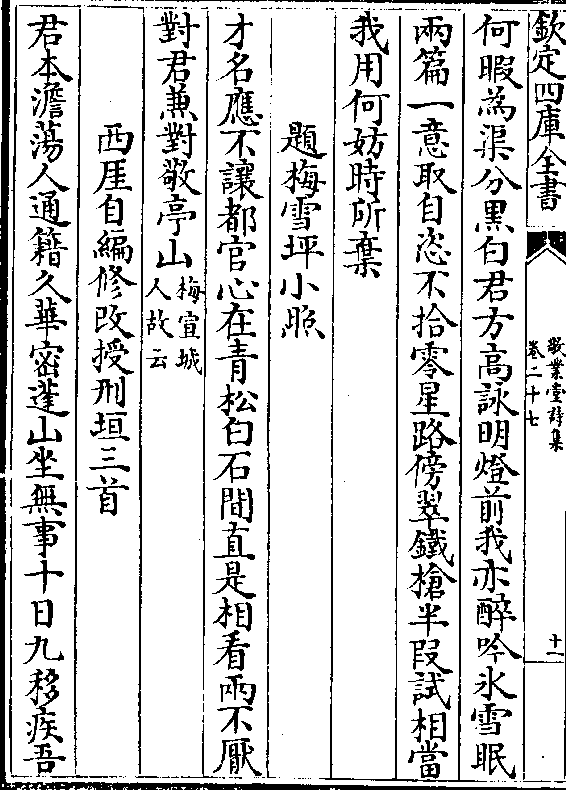 欽定四庫全書
敬業堂詩集
卷二十七
十一
何暇為渠分黑白君方高詠明燈前我亦醉吟氷雪眠
兩篇一意取自恣不拾零星路傍翠鐵槍半段試相當
我用何妨時所棄
題梅雪坪小照
才名應不讓都官心在青松白石間直是相看兩不厭
對君兼對敬亭山梅宣城
人故云
西厓自編修改授刑垣三首
君本澹蕩人通籍久華密蓬山坐無事十日九移疾吾